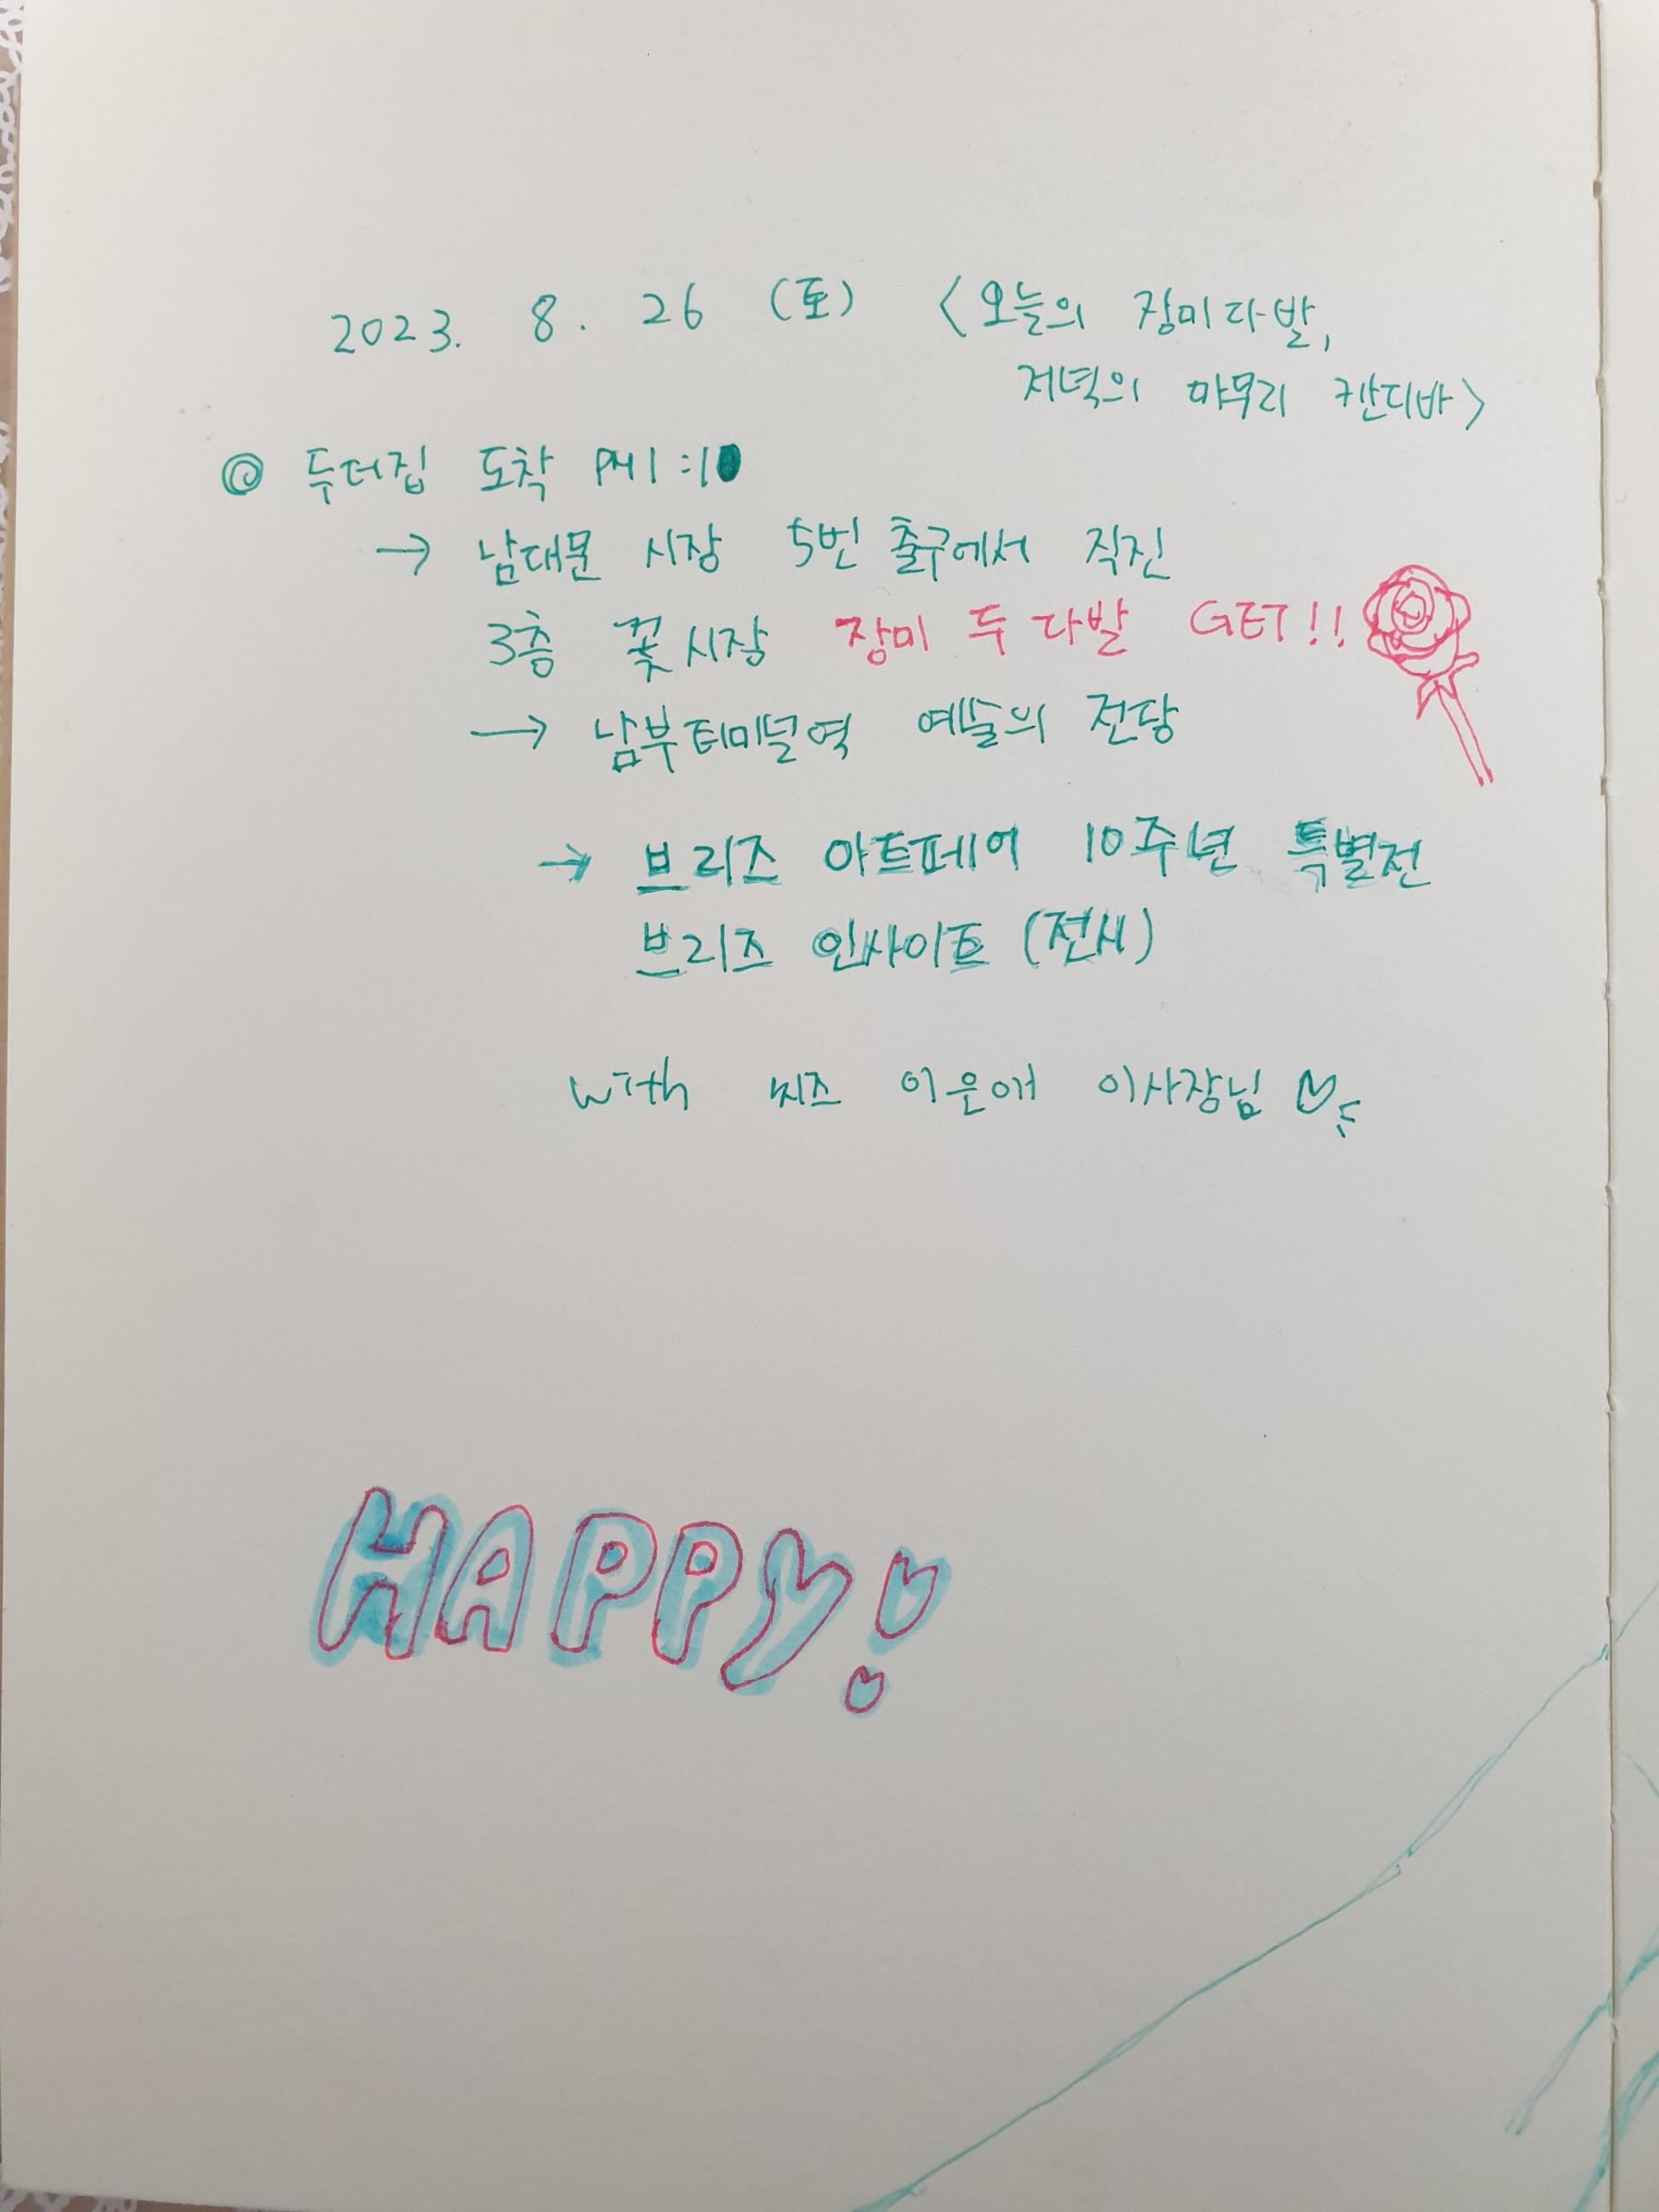 2023. 8. 26 (토) <오늘의 장미다발,
저녁의 마무리 캔디바>
◎ 두더집 도착 PM 1:10
→ 남대문 시장 5번 출구에서 직진
3층 꽃시장 장미 두 다발 GET!!
→ 남부터미널역 예술의 전당
→ 브리즈 아트페어 10주년 특별전
브리즈 인사이트 (전시)
with 씨즈 이은애 이사장님 ♡
HAPPY!